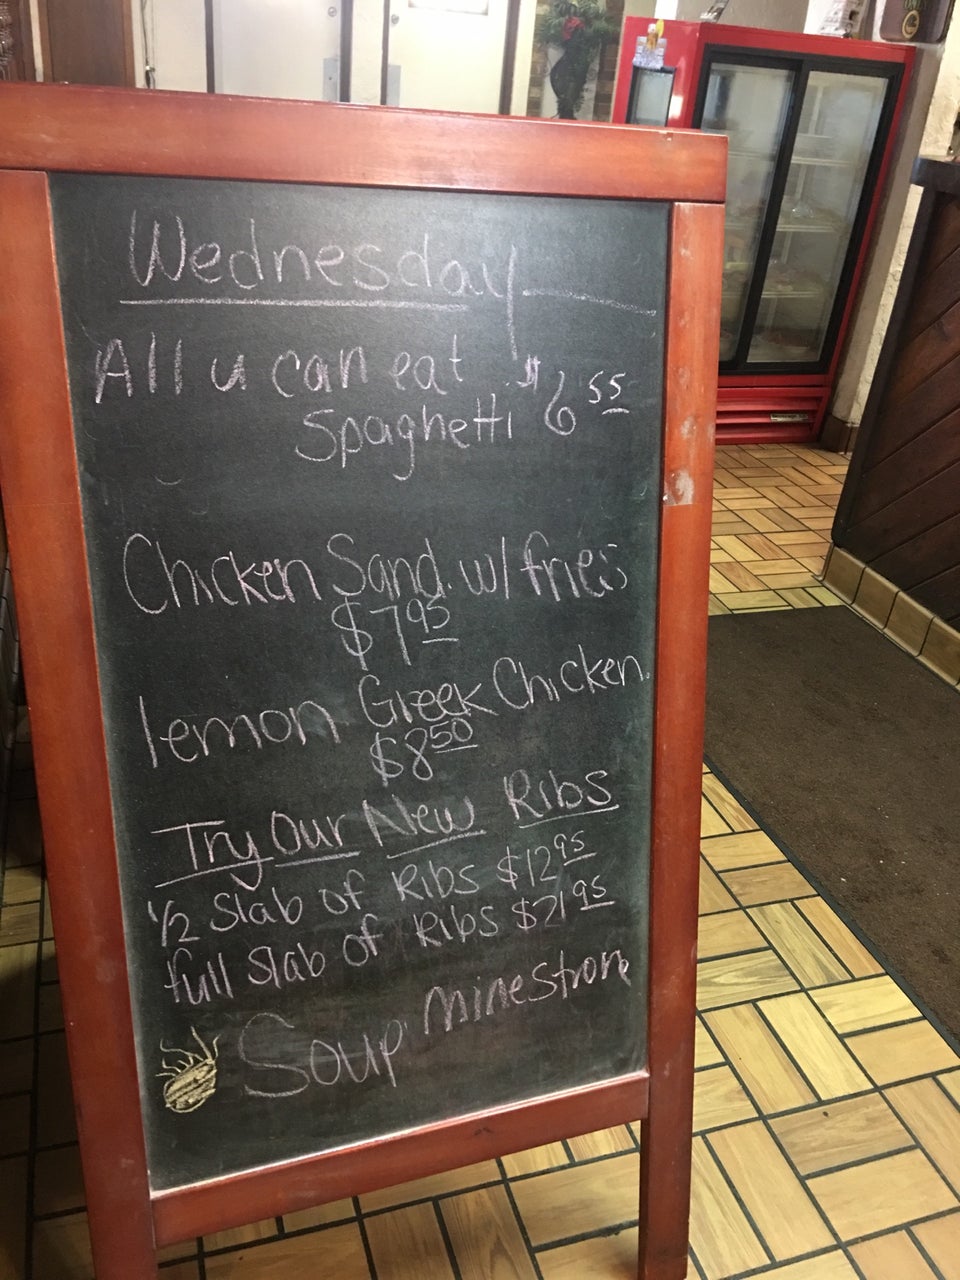 Wednesday
All u can eat
Spaghetti $6 55
Chicken Sand. w/ fries
$7 95
lemon Greek Chicken
$8 50
Try Our New Ribs
1/2 Slab of Ribs $12 95
full slab of Ribs $21 95
Soup Minestron